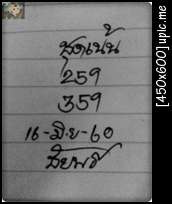 ชุดเน้น
259
359
16-มิ.ย-60
สืบพร
[450x600] upic.me